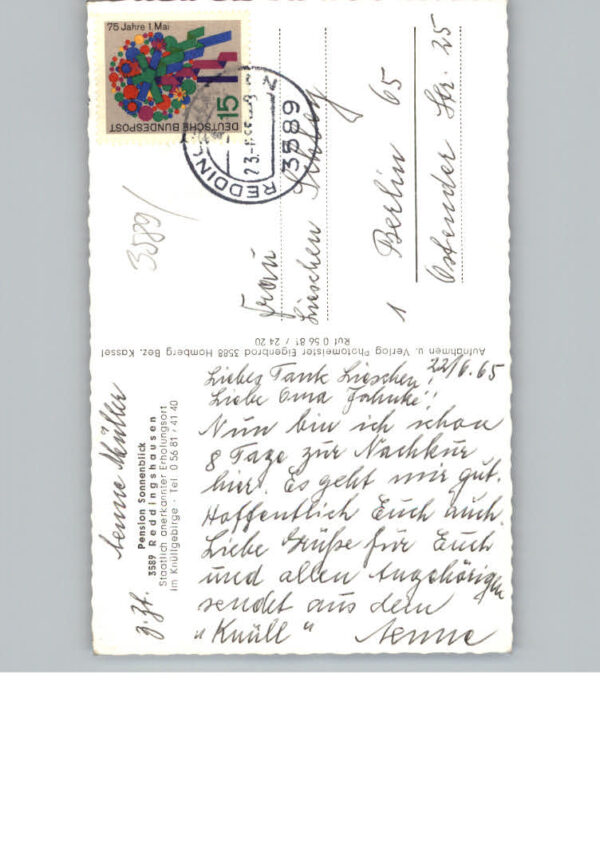 75 Jahre 1. Mai
15
DEUTSCHE BUNDESPOST
3589
REDDING
23.-
3589/
Frau
Lieschen
1 Berlin 65
Ostender Str. 25
Aufnahmen u. Verlag Photomeister Eigenbrod 3588 Homberg Bez. Kassel
Ruf 0 56 81 / 24 20
22/6.65
Liebes Tante Lieschen!
Liebe Oma Jahnke!!
Nun bin ich schon
8 Tage zur Nachkur
hier. Es geht mir gut.
Hoffentlich Euch auch.
Liebe Grüße für Euch
und allen Angehörigen
sendet aus dem
„Knüll“ Aenne
z. Zt. Aenne Müller
Pension Sonnenblick
3589 Reddingshausen
Staatlich anerkannter Erholungsort
im Knüllgebirge · Tel. 0 56 81 / 41 40